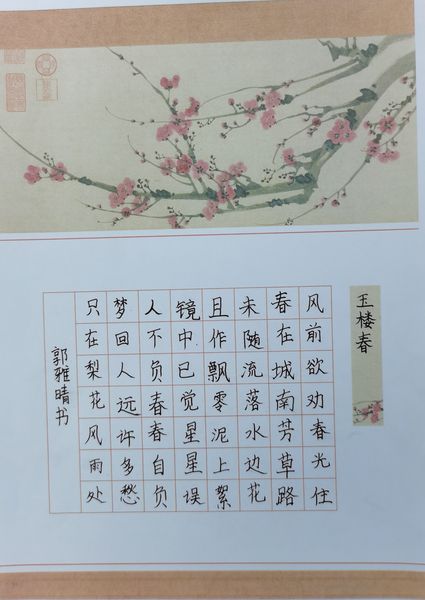 玉楼春
风前欲劝春光住
春在城南芳草路
未随流落水边花
且作飘零泥上絮
镜中已觉星星误
人不负春春自负
梦回人远许多愁
只在梨花风雨处
郭雅晴书